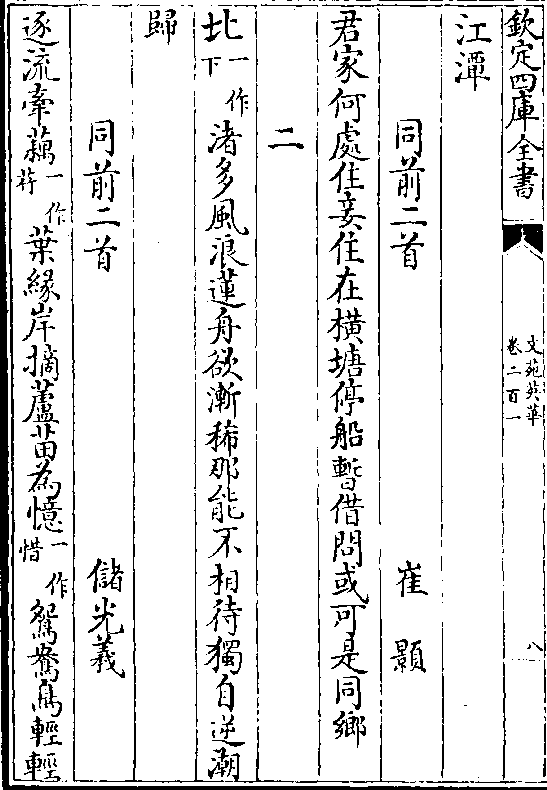 欽定四庫全書
文苑英華
卷二百一
八
江潭
同前二首 崔顥
君家何處住妾住在橫塘停船暫借問或可是同鄉
二
北一作下渚多風浪蓮舟欲漸稀那能不相待獨自逆潮
歸
同前二首 儲光羲
逐流牽藕一作荇葉緣岸摘蘆苗為憶一作惜鴛鴦鳥輕輕